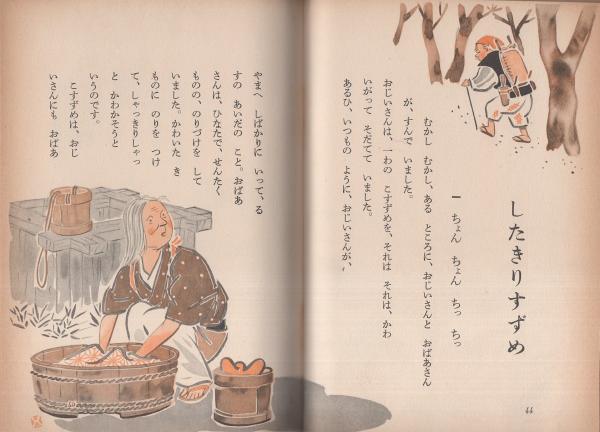 したきりすずめ
一 ちょん ちょん ちっ ちっ
むかし むかし、ある ところに、おじいさんと おばあさん
が、すんで いました。
おじいさんは、一わの こすずめを、それは それは、かわ
いがって そだてて いました。
あるひ、いつもの ように、おじいさんが、
44
やまへ しばかりに いって、る
すの あいだの こと。おばあ
さんは、ひなたで、せんたく
ものの、のりづけを して
いました。かわいた き
ものに のりを つけ
て、しゃっきりしゃっ
と かわかそうと
いうのです。
こすずめは、おじ
いさんにも おばあ